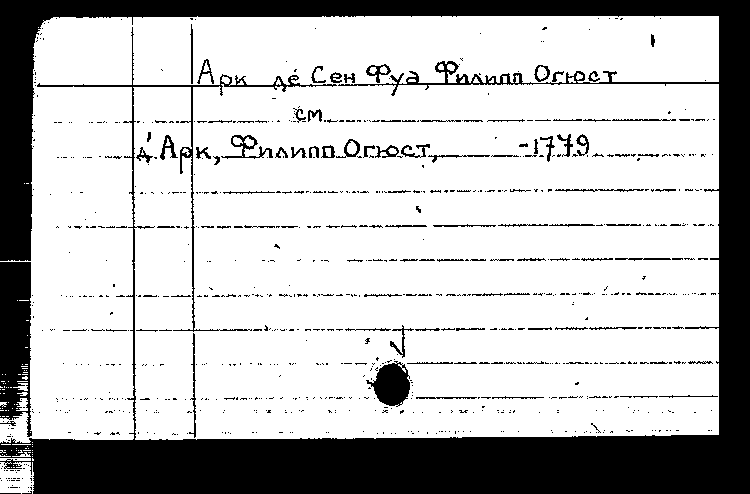 Арк де Сен Фуа, Филипп Огюст
см
д'Арк, Филипп Огюст, -1779